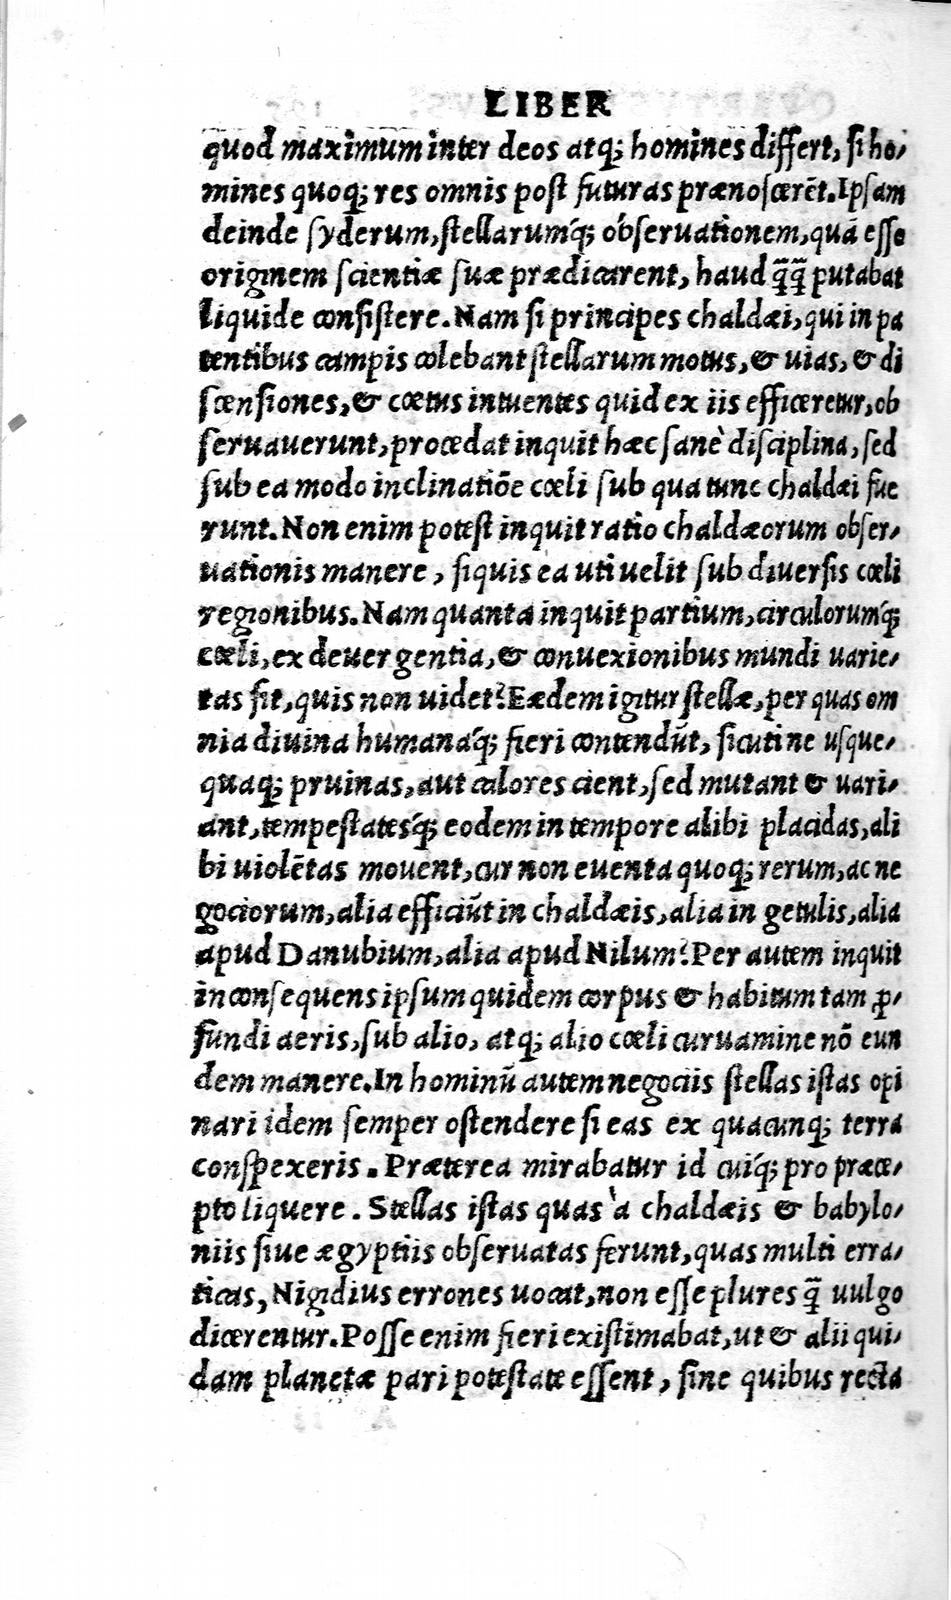 LIBER
quod maximum inter deos atq; homines differt, si ho-
mines quoq; res omnis post futuras prænoscerēt. Ipsam
deinde syderum, stellarumq́; óbseruationem, quā esse
originem scientiæ suæ prædicarent, haud q̄q̄ putabat
liquide consistere. Nam si principes chaldæi, qui in pa
tentibus campis colebant stellarum motus, & uias, & di
scensiones, & cœtus intuentes quid ex iis efficeretur, ob
seruauerunt, procedat inquit hæc sanè disciplina, sed
sub ea modo inclinatiōe cœli sub qua tunc chaldæi fue
runt. Non enim potest inquit ratio chaldæorum obser-
uationis manere, siquis ea uti uelit sub diuersis cœli
regionibus. Nam quanta inquit partium, circulorumq́;
cœli, ex deuergentia, & conuexionibus mundi uarie-
tas sit, quis non uidet? Eædem igitur stellæ, per quas om
nia diuina humanaq́; fieri contendūt, sicuti ne usque-
quaq; pruinas, aut calores cient, sed mutant & uari-
ant, tempestatesq́; eodem in tempore alibi placidas, ali
bi uiolētas mouent, cur non euenta quoq; rerum, ac ne
gociorum, alia efficiūt in chaldæis, alia in getulis, alia
apud Danubium, alia apud Nilum? Per autem inquit
inconsequens ipsum quidem corpus & habitum tam ꝓ-
fundi aeris, sub alio, atq; alio cœli curuamine nō eun
dem manere. In hominū autem negociis stellas istas opi
nari idem semper ostendere si eas ex quacunq; terra
conspexeris. Præterea mirabatur id cuiq́; pro præce-
pto liquere. Stellas istas quas à chaldæis & babylo-
niis siue ægyptiis obseruatas ferunt, quas multi erra-
ticas, Nigidius errones uocat, non esse plures q̄ uulgo
dicerentur. Posse enim fieri existimabat, ut & alii qui-
dam planetæ pari potestate essent, sine quibus recta